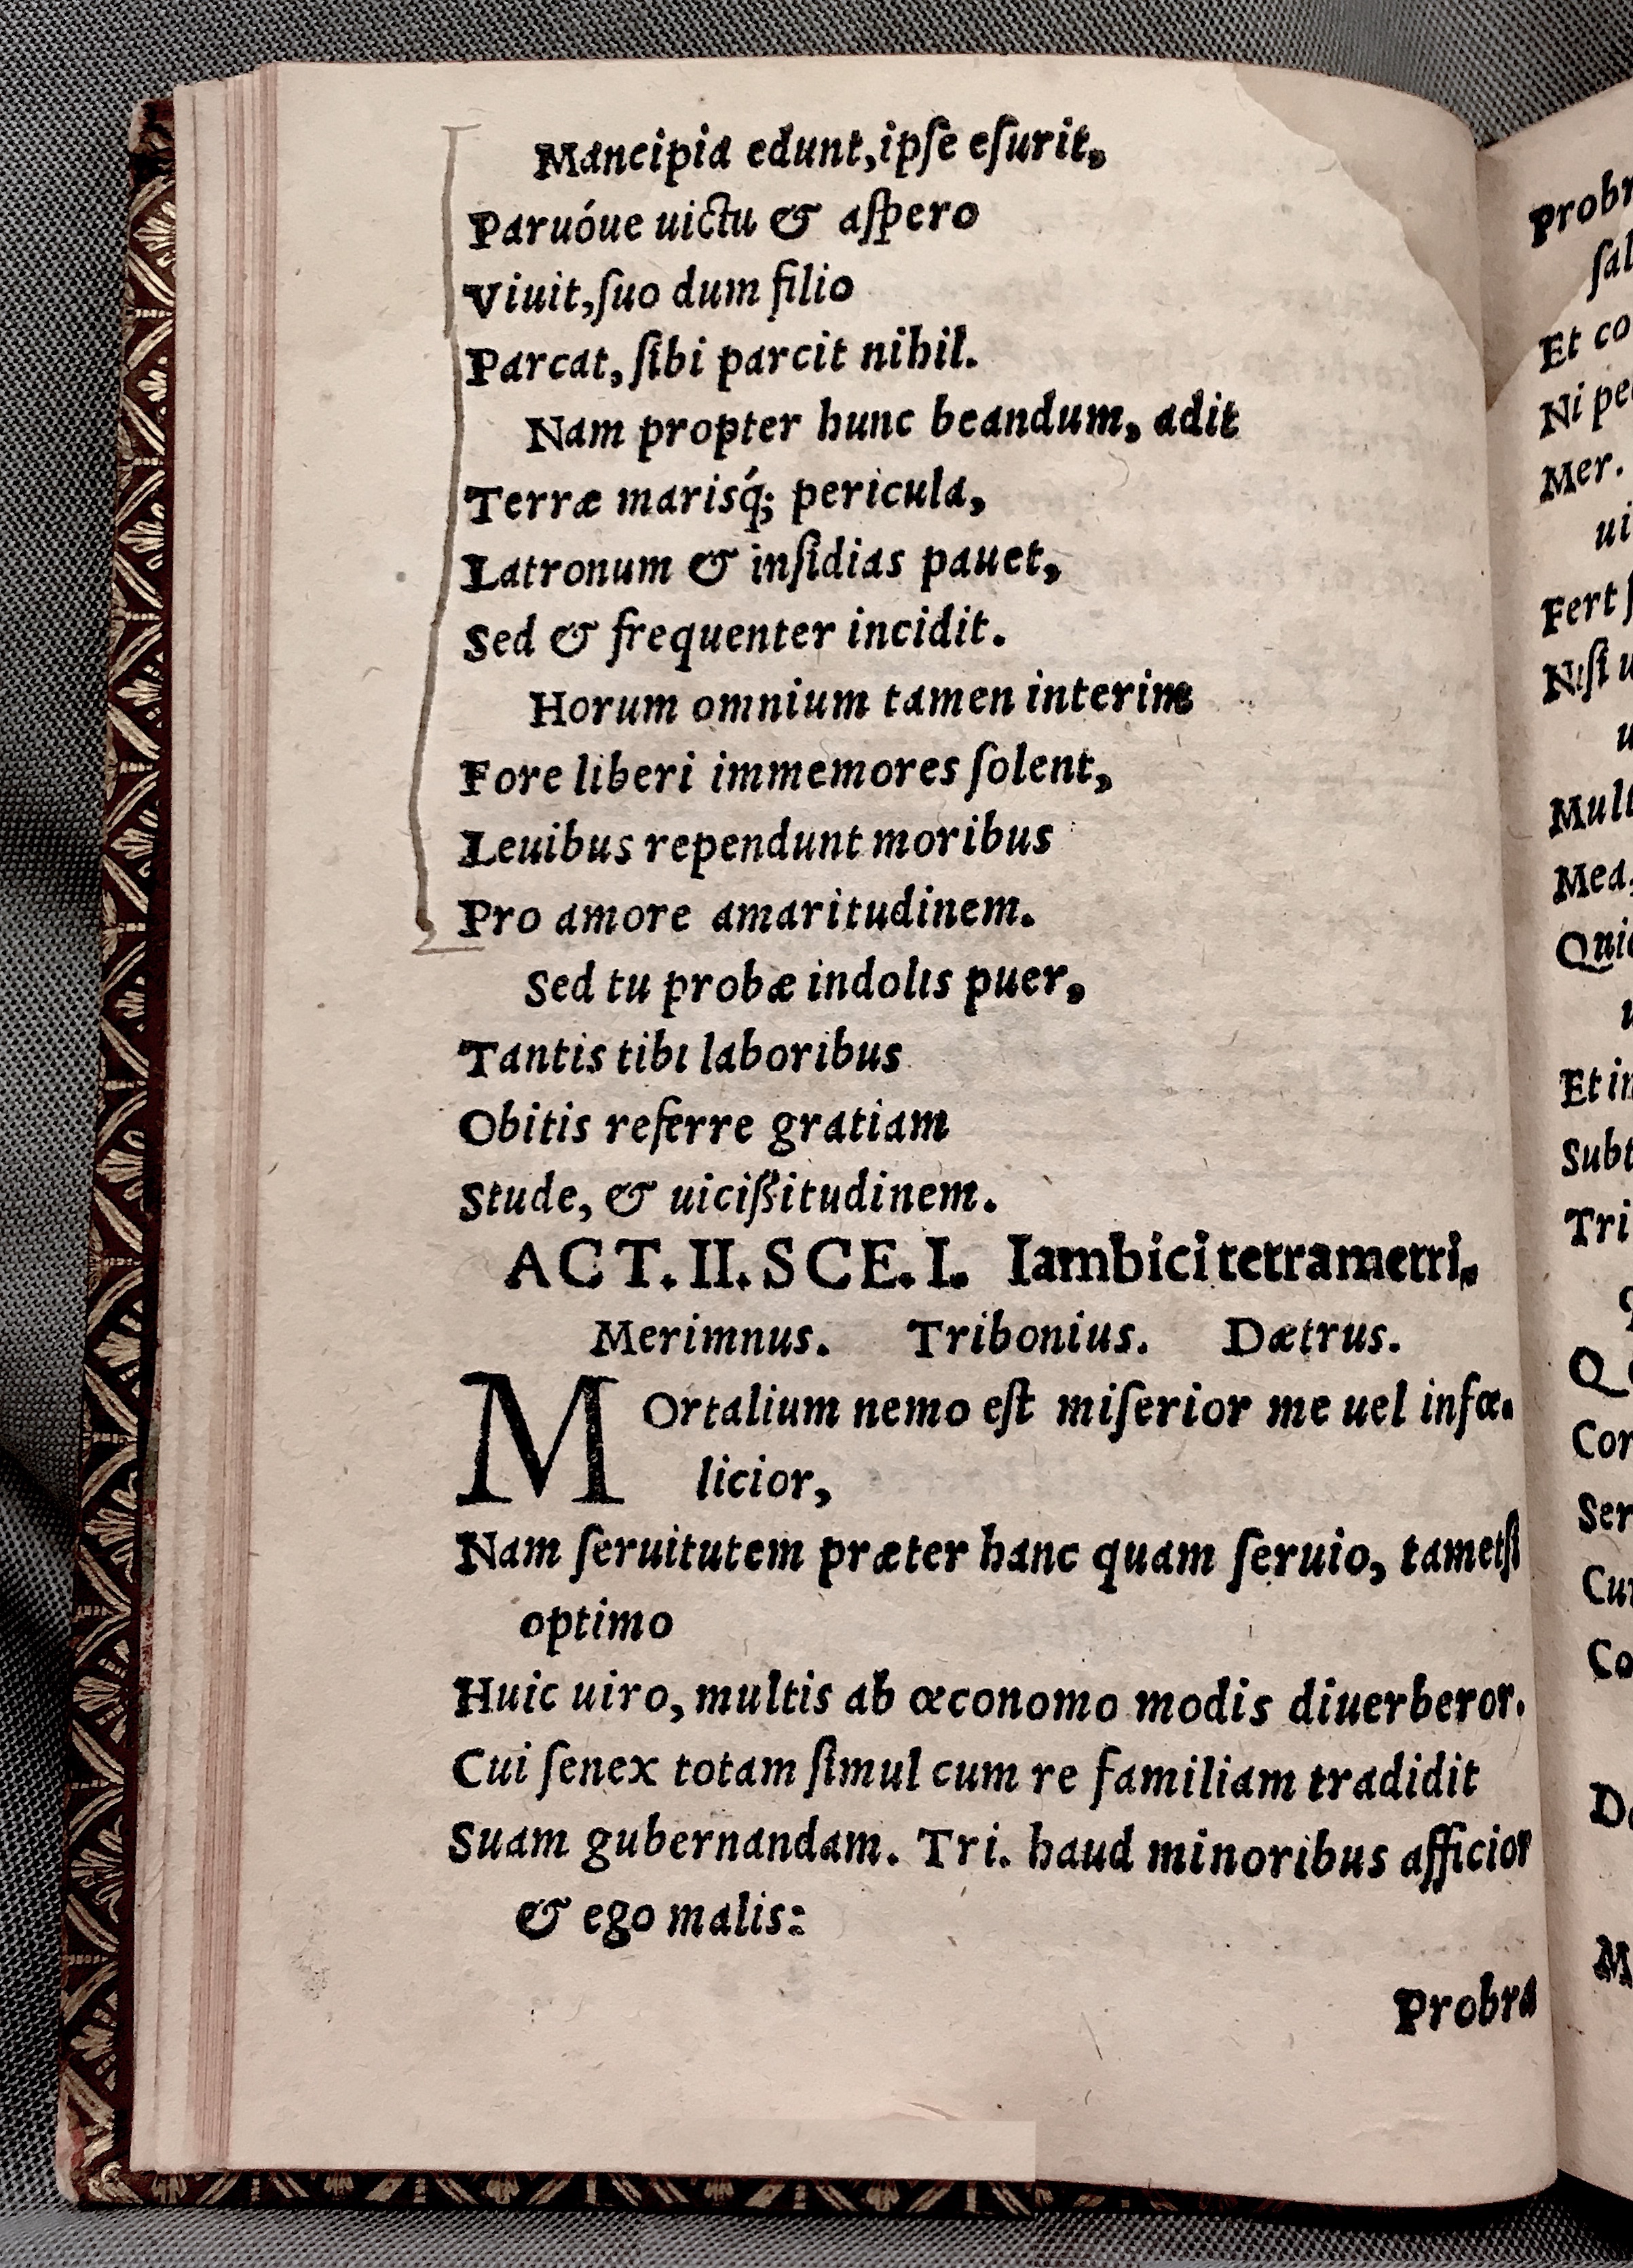 Mancipia edunt, ipſe eſurit,
Paruóue uictu & aſpero
Viuit, ſuo dum filio
Parcat, ſibi parcit nihil.
Nam propter hunc beandum, adit
Terræ marisq́; pericula,
Latronum & inſidias pauet,
Sed & frequenter incidit.
Horum omnium tamen interim
Fore liberi immemores ſolent,
Leuibus rependunt moribus
Pro amore amaritudinem.
Sed tu probæ indolis puer,
Tantis tibi laboribus
Obitis referre gratiam
Stude, & uiciſſitudinem.
ACT. II. SCE. I. Iambici tetrametri.
Merimnus. Tribonius. Dætrus.
MOrtalium nemo eſt miſerior me uel infœ-
licior,
Nam ſeruitutem præter hanc quam ſeruio, tametſi
optimo
Huic uiro, multis ab œconomo modis diuerberor.
Cui ſenex totam ſimul cum re familiam tradidit
Suam gubernandam. Tri. haud minoribus afficior
& ego malis:
Probra
Probr
ſal
Et co
Ni pe
Mer.
ui
Fert
Niſi u
u
Mult
Mea,
Quid
u
Et in
Subt
Tri
Cor
Ser
Cur
Co
M